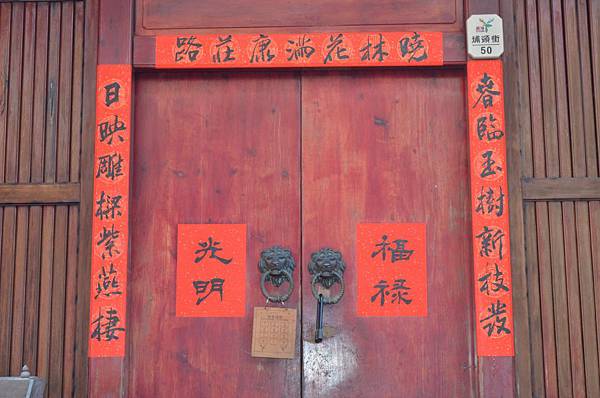 曉林花滿康莊路
埔頭街
50
春臨玉樹新枝發
日映雕樑紫燕棲
福祿
光明